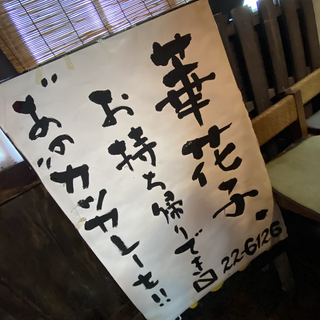 華花子、
お持ち帰りでき〼
あのカツカレーも!!
22-6126